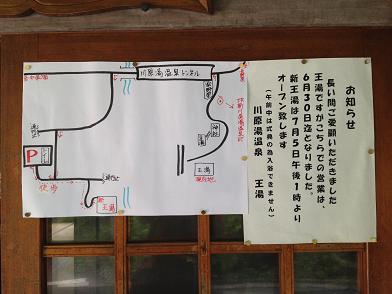 お知らせ
長い間ご愛顧いただきました
王湯ですがこちらでの営業は、
6月30日迄となりました。
新王湯は7月5日午後1時より
オープン致します
(午前中は式典の為入浴できません)
川原湯温泉 王湯
川原湯温泉トンネル
神社
王湯
現在地
P
徒歩
新
王湯